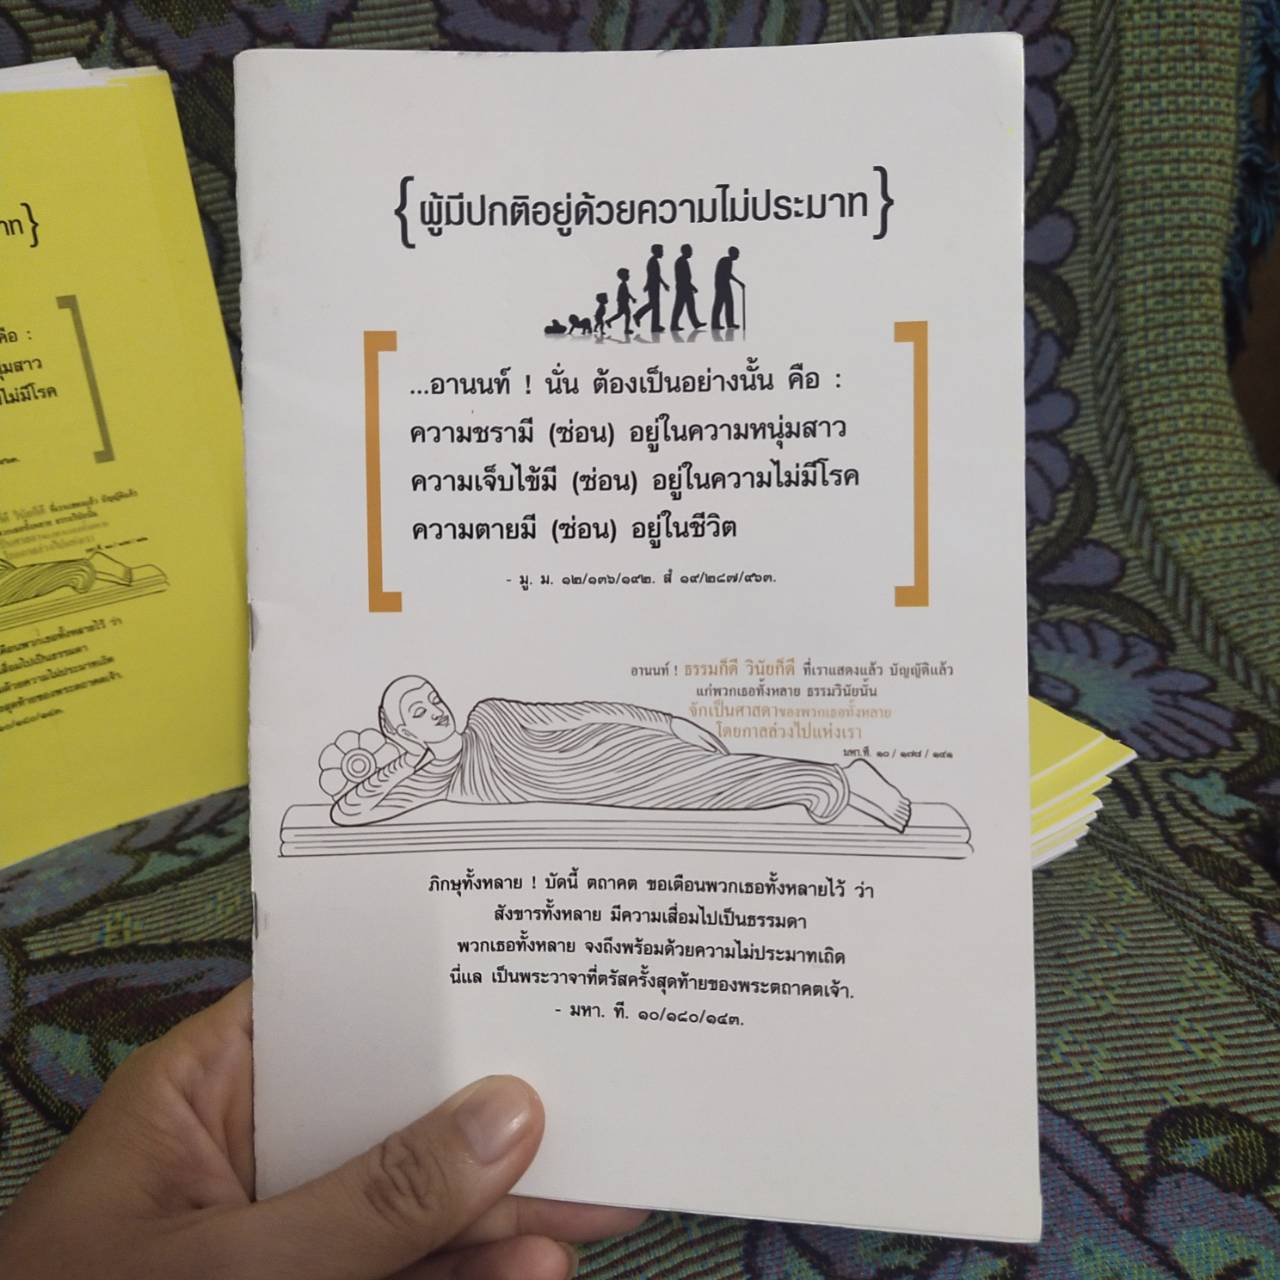 {ผู้มีปกติอยู่ด้วยความไม่ประมาท}
...อานนท์ ! นั่น ต้องเป็นอย่างนั้น คือ :
ความชรามี (ซ่อน) อยู่ในความหนุ่มสาว
ความเจ็บไข้มี (ซ่อน) อยู่ในความไม่มีโรค
ความตายมี (ซ่อน) อยู่ในชีวิต
- มู. ม. ๑๒/๑๓๖/๑๙๒. สํ ๑๙/๒๘๗/๙๖๓.
อานนท์ ! ธรรมก็ดี วินัยก็ดี ที่เราแสดงแล้ว บัญญัติแล้ว
แก่พวกเธอทั้งหลาย ธรรมวินัยนั้น
จักเป็นศาสดาของพวกเธอทั้งหลาย
โดยกาลล่วงไปแห่งเรา
มหา.ที. ๑๐ / ๑๗๘ / ๑๔๑
ภิกษุทั้งหลาย ! บัดนี้ ตถาคต ขอเตือนพวกเธอทั้งหลายไว้ ว่า
สังขารทั้งหลาย มีความเสื่อมไปเป็นธรรมดา
พวกเธอทั้งหลาย จงถึงพร้อมด้วยความไม่ประมาทเถิด
นี่แล เป็นพระวาจาที่ตรัสครั้งสุดท้ายของพระตถาคตเจ้า.
- มหา. ที. ๑๐/๑๘๐/๑๔๓.
าท}
คือ :
นุ่มสาว
ไม่มีโรค
ที่เราแสดงแล้ว บัญญัติแล้ว
เตือนพวกเธอทั้งหลายไว้ ว่า
เสื่อมไปเป็นธรรมดา
ด้วยความไม่ประมาทเถิด
ท้ายของพระตถาคตเจ้า.